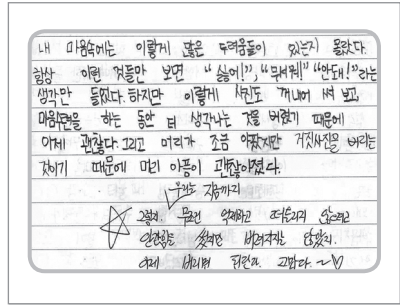 내 마음속에는 이렇게 많은 두려움들이 있는지 몰랐다.
항상 이런 것들만 보면 "싫어!", "무서워!" "안돼!"라는
생각만 들었다. 하지만 이렇게 사진도 꺼내어 써 보고,
마음수련을 하는 동안 더 생각나는 것을 버렸기 때문에
이제 괜찮다. 그리고 머리가 조금 아팠지만 거짓사진을 버리는
것이기 때문에 머리 아픔이 괜찮아졌다.
우리는 지금까지
그렇지. 무조건 억제하고 떠올리지 않으려고
안간힘을 썼지만 버려지지는 않았지.
이제 버리면 되는구나. 고맙다. ~♡